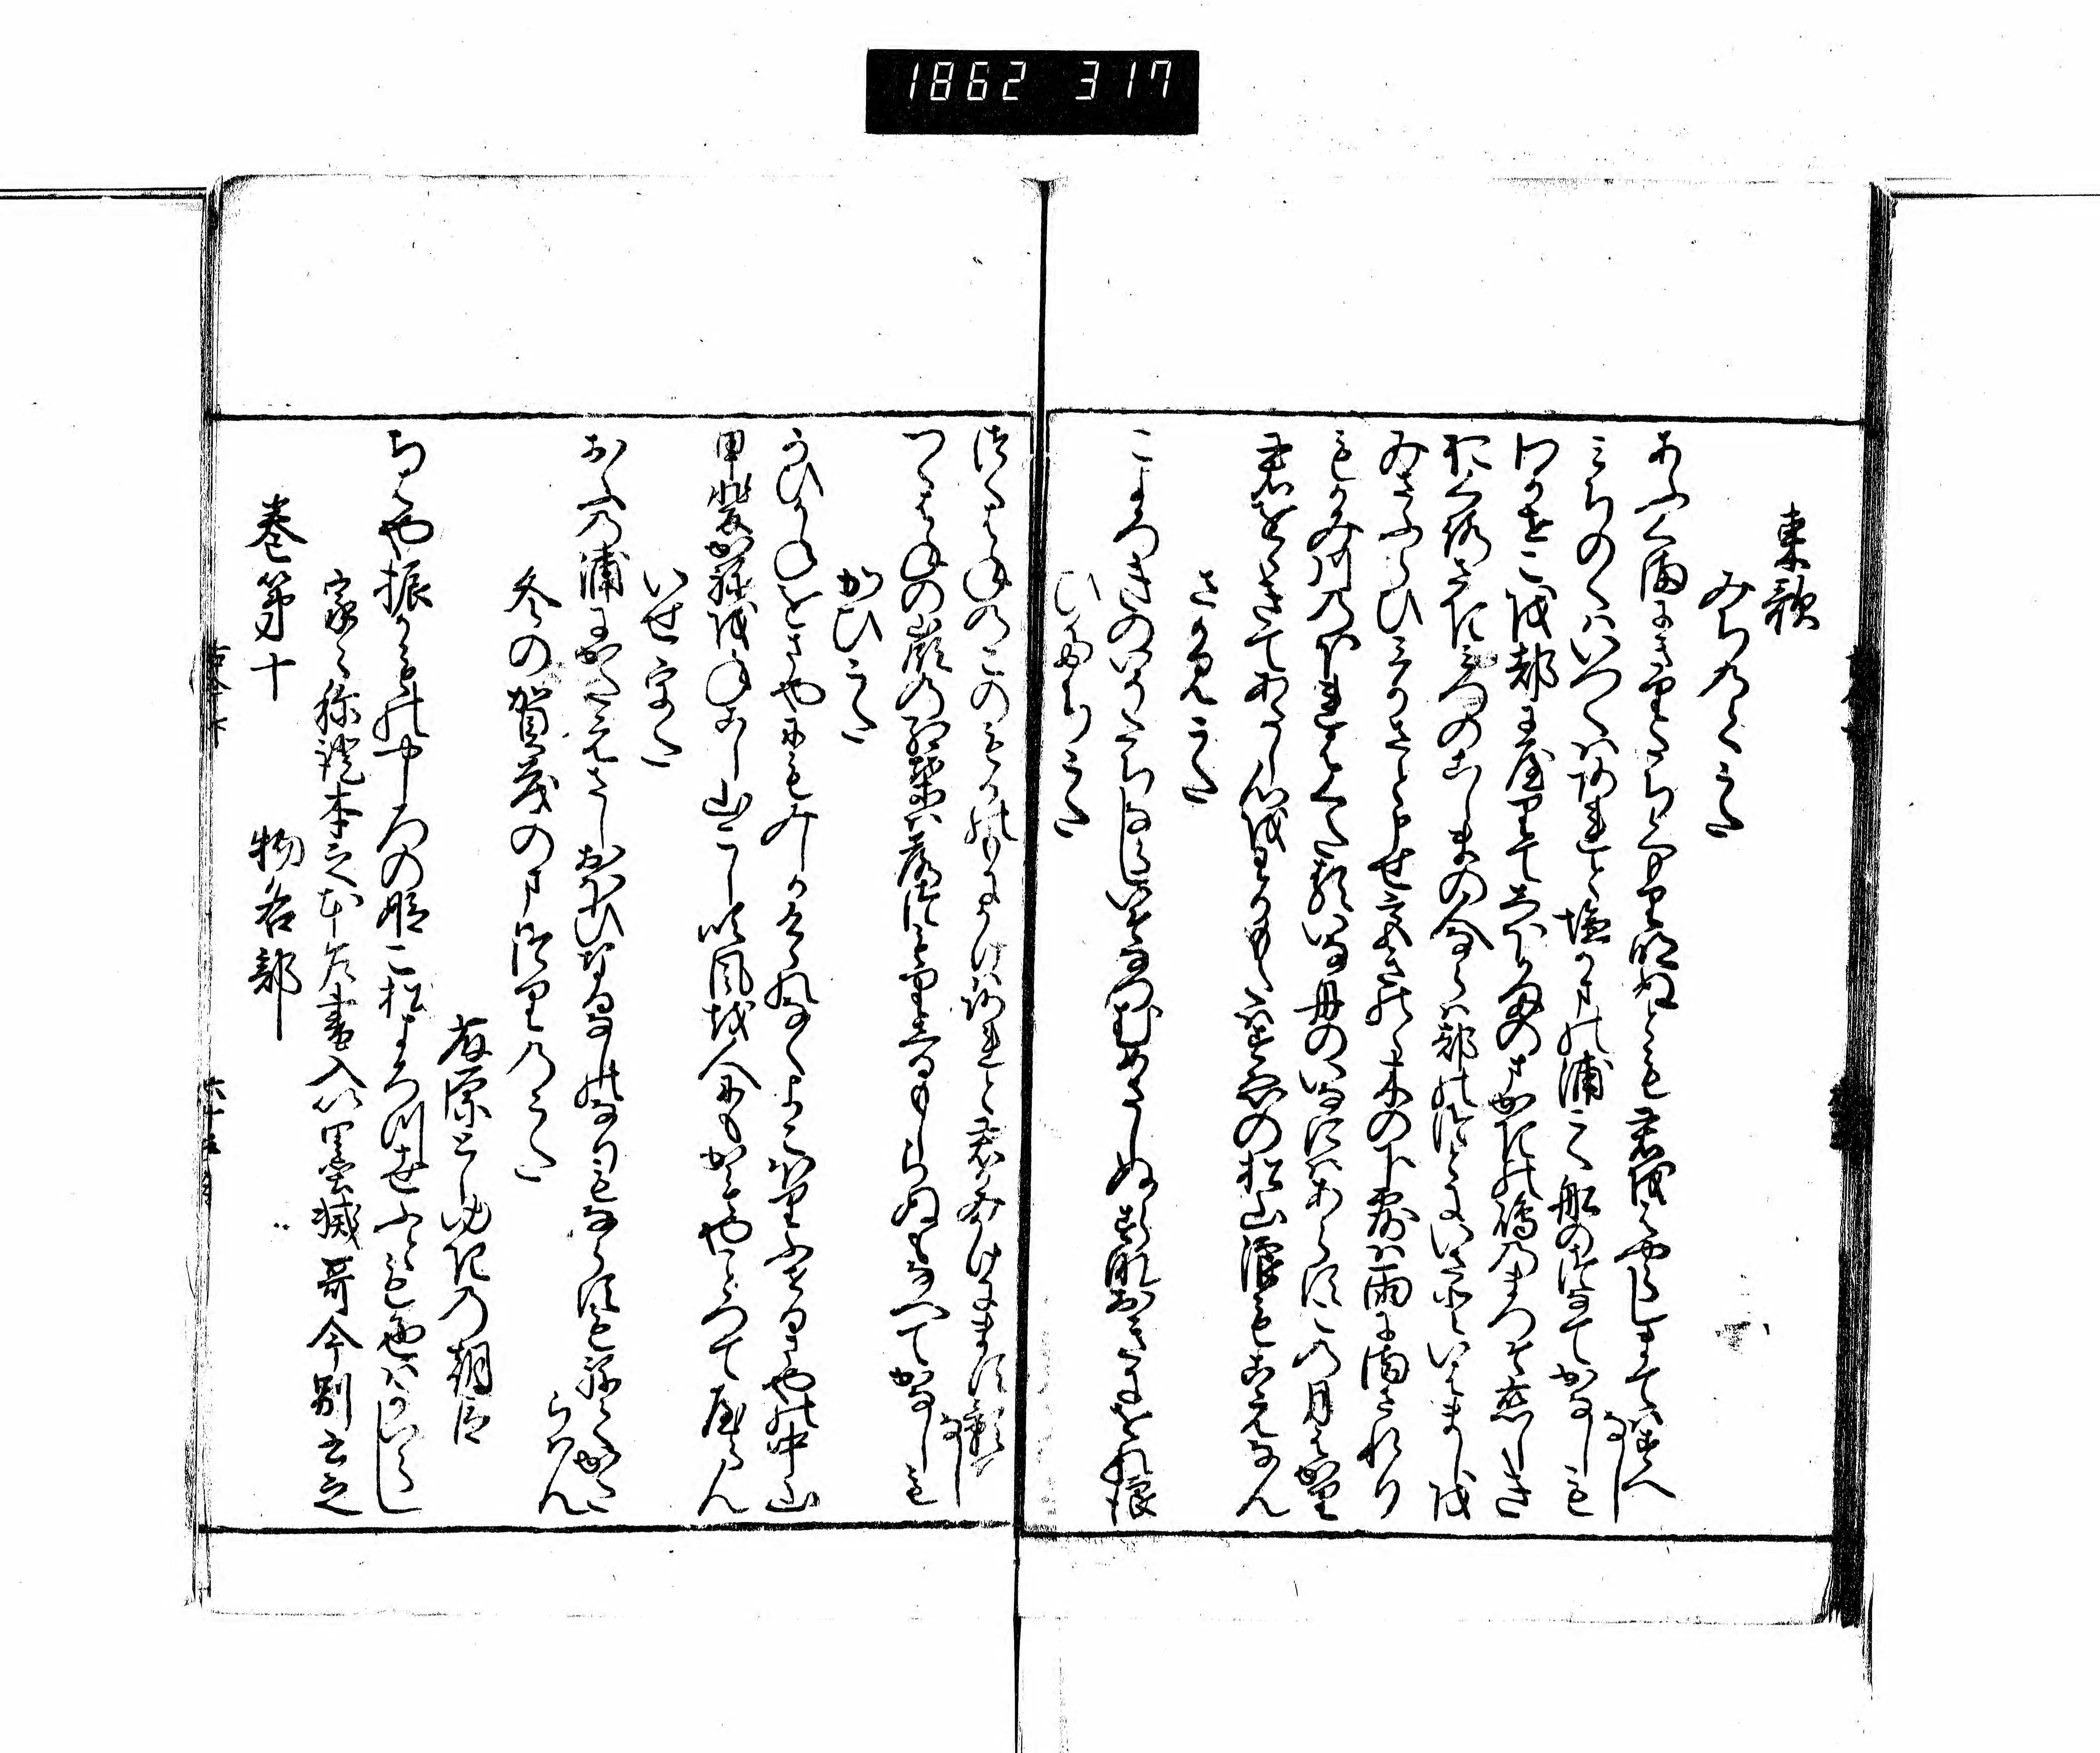 1862 317
東歌
みちのくうた
あふくまに霧たちくもり明ぬとも君をはやらしまてはすへ
なし
みちのくはいつくはあれと塩かまの浦こく舟の綱手かなしも
わかせこを都にやりてしほかまのまかきの嶋のまつそ恋しき
おくろさきみつのこしまの人ならは都のつとにいさといはましを
みさふらひみかさと申せ宮木のの木の下露は雨にまされり
もかみ河のほれはくたるいな舟のいなにはあらすこの月はかり
君をゝきてあたし心をわかもたはすゑの松山浪もこえなん
さかみうた
こよろきのいそたちならしいそなつむめさしぬらすなおきにをれ浪
ひたちうた
つくはねのこのもかのもにかけはあれと君かみかけにます影は
なし
つくはねの嶺の紅葉は落つもりしるもしらぬもなへてかなしも
かひうた
かひかねをさやにもみしかけゝれなくよこほりふせるさや の中山
甲斐か ねを ねこし山こし吹風を人にもかもやことつてやらん
いせうた
おふの浦にかたえさしおほひなるなしのなりもならすもねてかた
らはん
冬の賀茂のまつりのうた
藤原としゆきの朝臣
ちはや振かもの やしろの姫こ松よろつ世ふとも色はかはらし
家々称証本之本乍書入以墨滅哥今別書之
巻第十
物名部